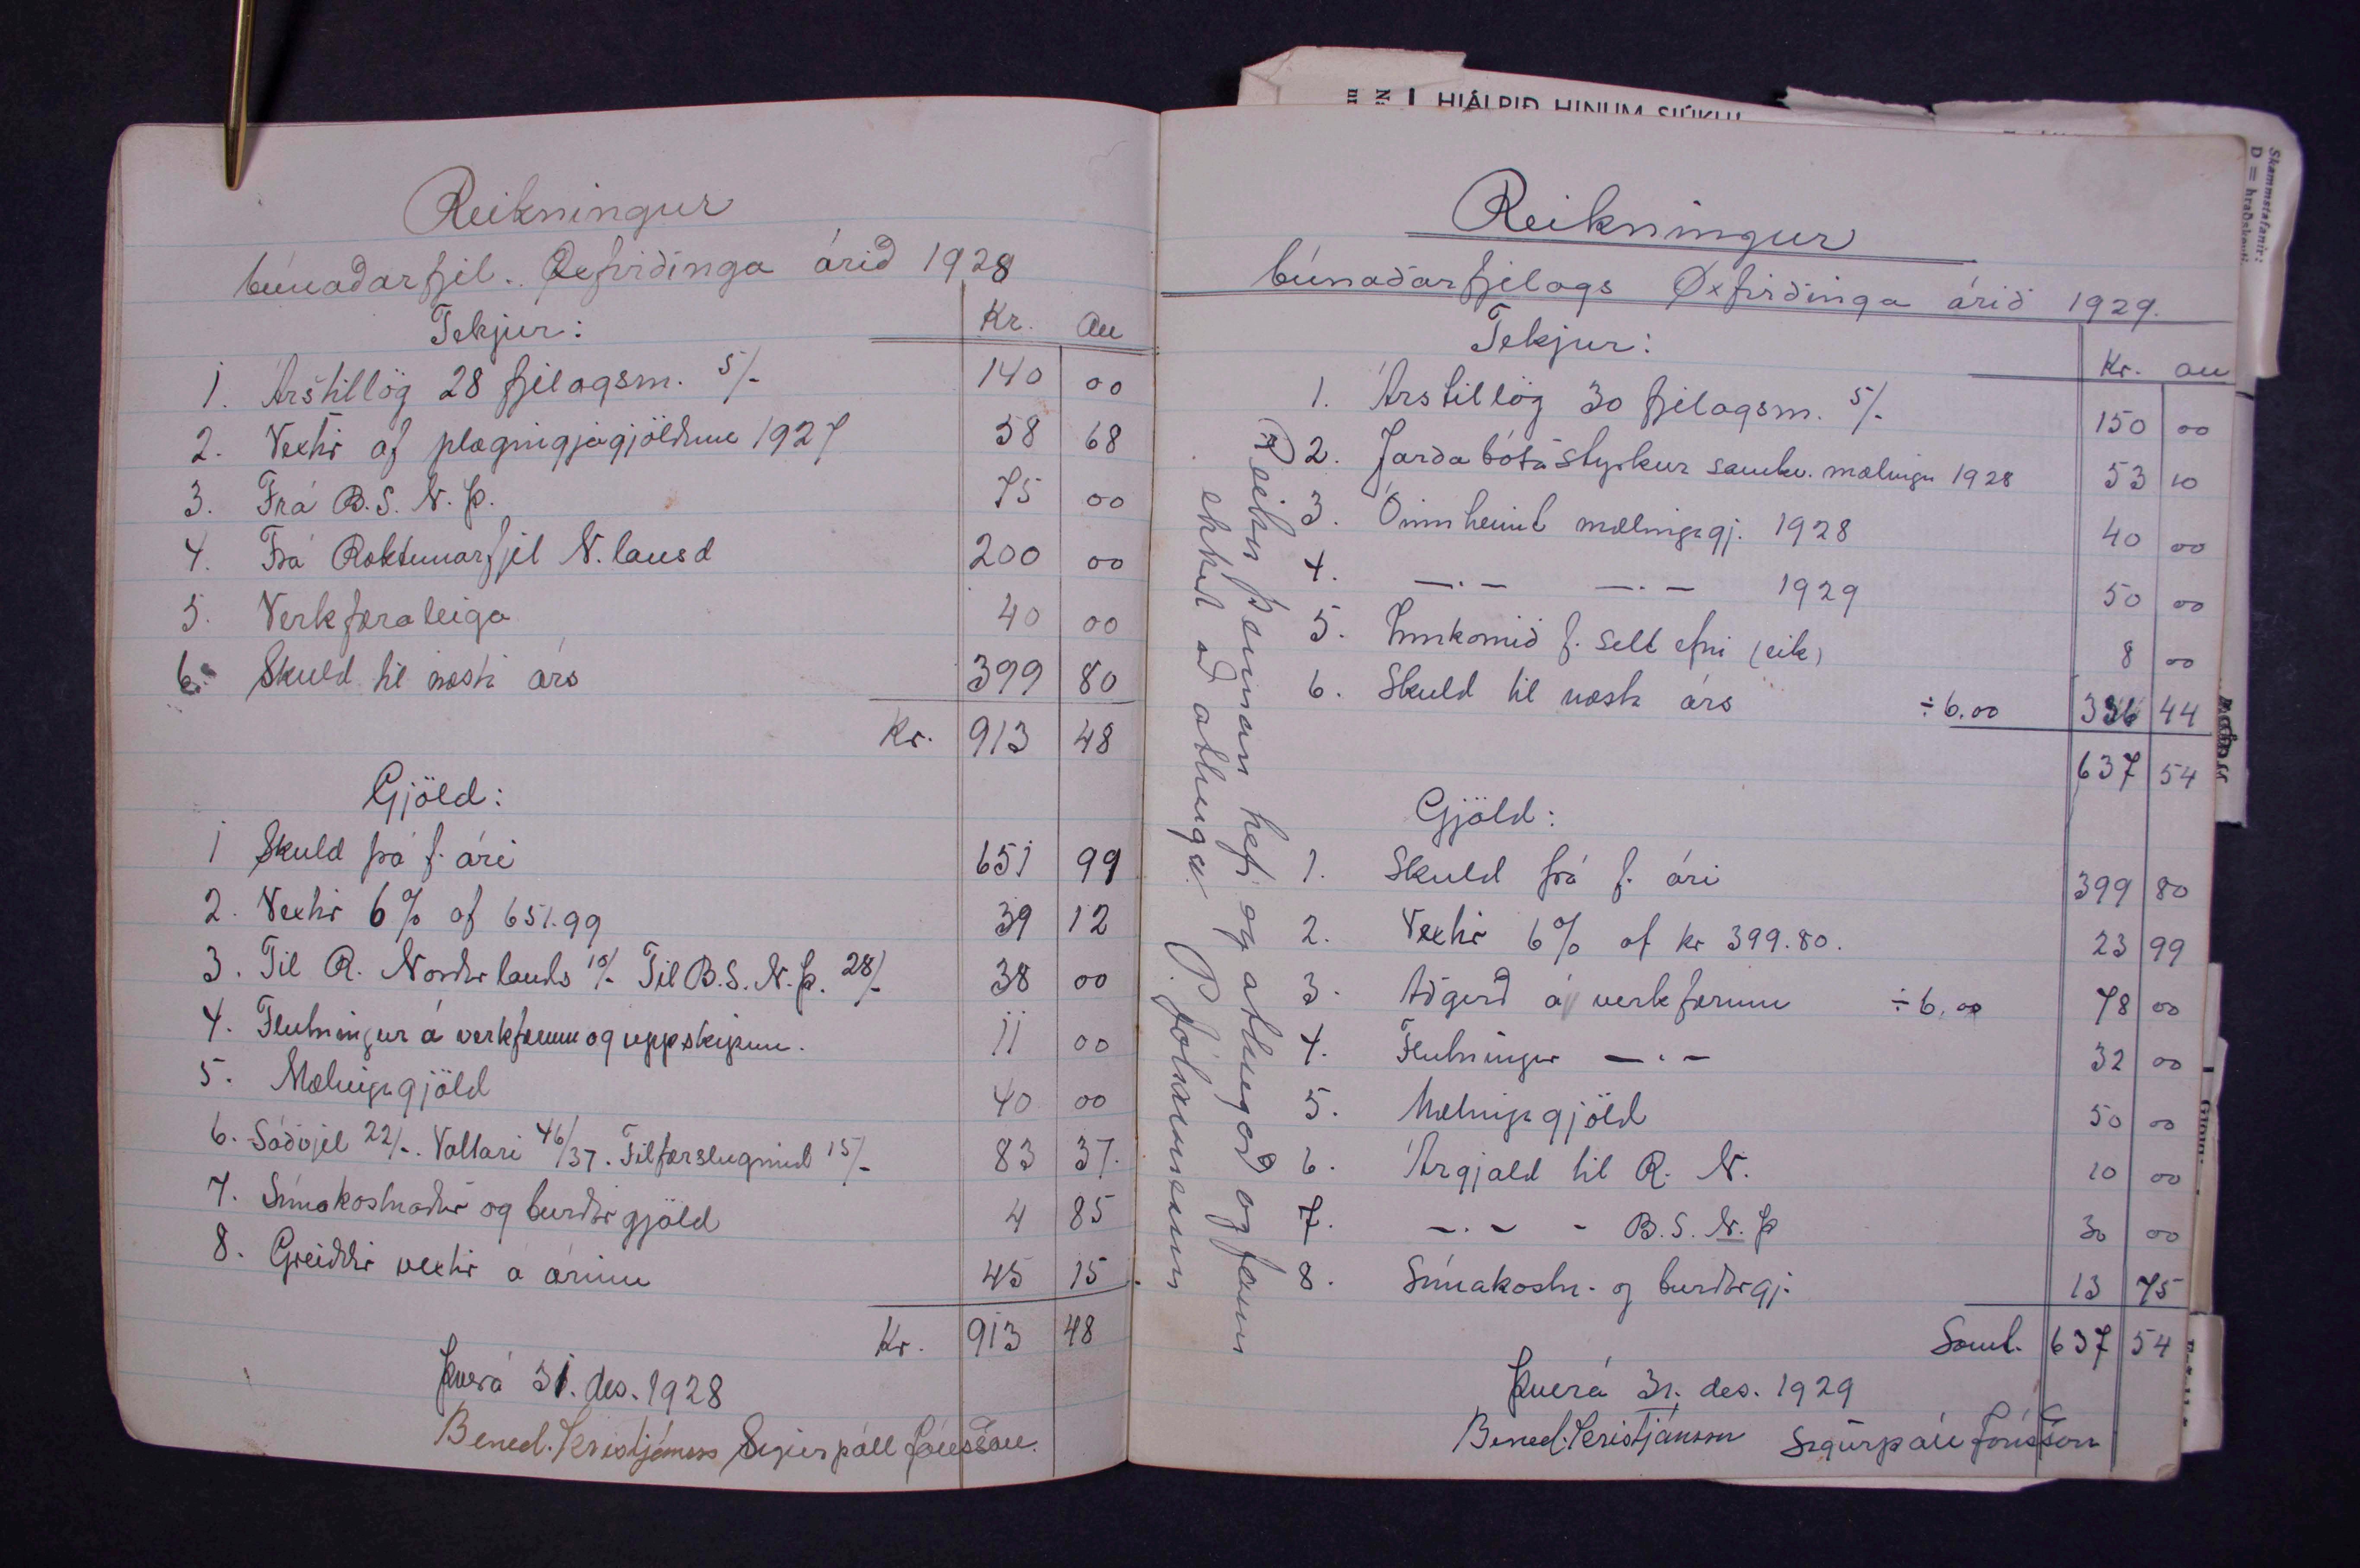 Reikningur
búnaðarfjel. Öxfirðinga árið 1928
Tekjur:
Kr. Au
1. Árstillög 28 fjelagsm. 5/- 140 00
2. Vextir af plægingjagjöldum 1927 58 68
3. Frá B.S.N.Þ. 75 00
4. FráRæktunarfjel N.lands 200 00
5. Verkfæraleiga 40 00
6. Skuld til næsta árs 399 80
Kr. 913 48
Gjöld:
1 Skuld frá f. ári 651 99
2. Vextir 6% af 651.99 39 12
3. Til R. Norðurlands 10/- Til B.S.N.Þ. 28/- 38 00
4. Flutningur á verkfærum og uppskipun. 11 00
5. Mælingagjöld 40 00
6. Sáðvjel 22/-. Valtari 46/37. Tilfærslugmid 15/- 83 37.
7. Símakostnaður og burðargjöld 4 85
8. Greiddir vextir á árinu 45 15
Kr. 913 48
Þverá 31. des. 1928
Bened. Kristjánss Sigurpáll Jónsson.
HJÁLPIÐ HINUM SJÚKU!
Skammstafanir:
D = hraðskeyti
Reikningur
búnaðarfjelags Öxfirðinga árið 1929.
Tekjur:
Kr. au
1. Árstillög 30 fjelagsm. 5/- 150 00
2. Jarðabótastyrkur samkv. mælingu 1928 53 10
3. Óinnheimt mælingagj. 1928 40 00
4. —.— —.— 1929 50 00
5. Innkomið f. selt efni (eik) 8 00
6. Skuld til næsta árs ÷6.00 336 44
637 54
Gjöld:
1. Skuld frá f. ári 399 80
2. Vextir 6% af kr 399.80. 23 99
3. Aðgerð á verkfærum ÷6.00 78 00
4. Flutningur —.— 32 00
5. Mælingagjöld 50 00
6. Árgjald til R. N. 10 00
7. —.— - B.S.N.Þ 30 00
8. Símakostn. og burðargj. 13 75
Saml. 637 54
Þverá 31. des. 1929
Bened. Kristjánsson Sigurpáll Jónsson
Reikn þennan hefi eg athugað og fann
ekkert að athuga. P. Jóhannsson